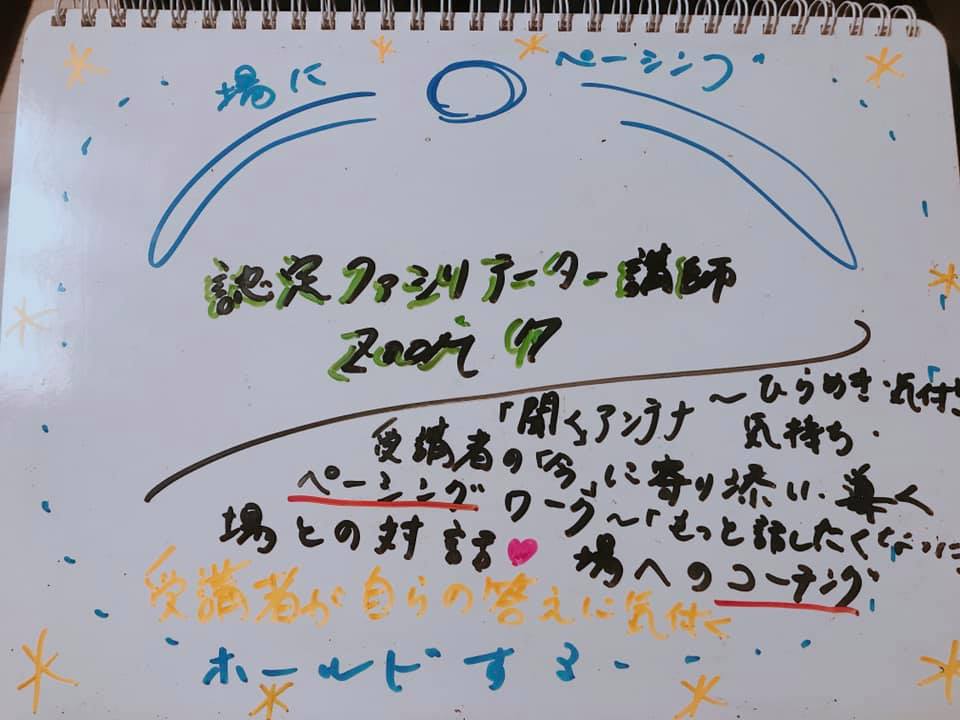 場に ペーシング
認定ファシリテーター講師
「聞く」アンテナ 〜ひらめき・気付き
受講者の「今」に寄り添い、導く 気持ち・
ペーシング ワーク〜「もっと話したくない
場との対話 場へのコーチング
受講者が自らの答えに気付く
ホールドする・・・